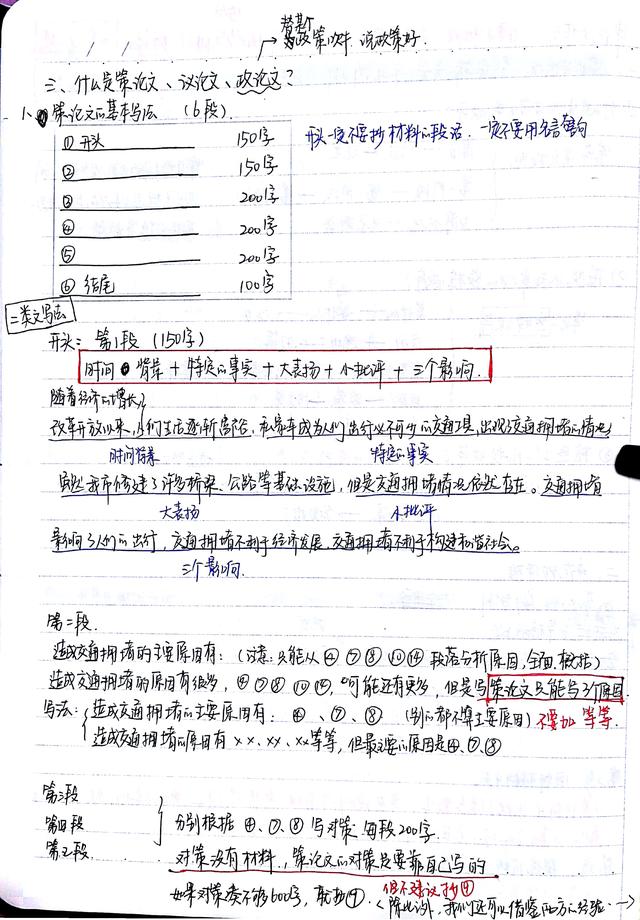 替某个
→ 政策伙伴 说政策好.
三、什么是策论文、议论文、政论文?
1、策论文的基本写法 (6段).
① 开头 150字
② 150字
③ 200字
④ 200字
⑤ 200字
⑥ 结尾 100字
开头一定不要抄材料的段落. 一定不要用名言警句
二类文写法
开头: 第1段 (150字)
时间背景 + 特定的事实 + 大表扬 + 小批评 + 三个影响.
随着经济的增长,
改革开放以来,人们生活逐渐富裕,私家车成为人们出行必不可少的交通工具,出现了交通拥堵的情况
时间背景 特定的事实
虽然我市修建了许多桥梁、公路等基础设施,但是交通拥堵情况依然存在。交通拥堵
大表扬 小批评
影响了人们的出行,交通拥堵不利于经济发展,交通拥堵不利于构建和谐社会。
三个影响.
第二段.
造成交通拥堵的主要原因有: (注意:只能从④⑦⑧⑩⑭段落分析原因,全面.概括)
造成交通拥堵的原因有很多, ④⑦⑧⑩⑭,可能还有更多,但是写策论文只能写3个原因
写法: 造成交通拥堵的主要原因有: ④、⑦、⑧ (别的都不算主要原因) 不要加 等等.
造成交通拥堵的原因有××、××、××等等,但最主要的原因是④、⑦、⑧
第三段
第四段
第五段
分别根据④、⑦、⑧写对策. 每段200字.
对策没有材料,策论文的对策是要靠自己写的
但不建议抄④
如果对策凑不够600字,就抄④.
(除此之外,我们还可以借鉴西方的经验. →)